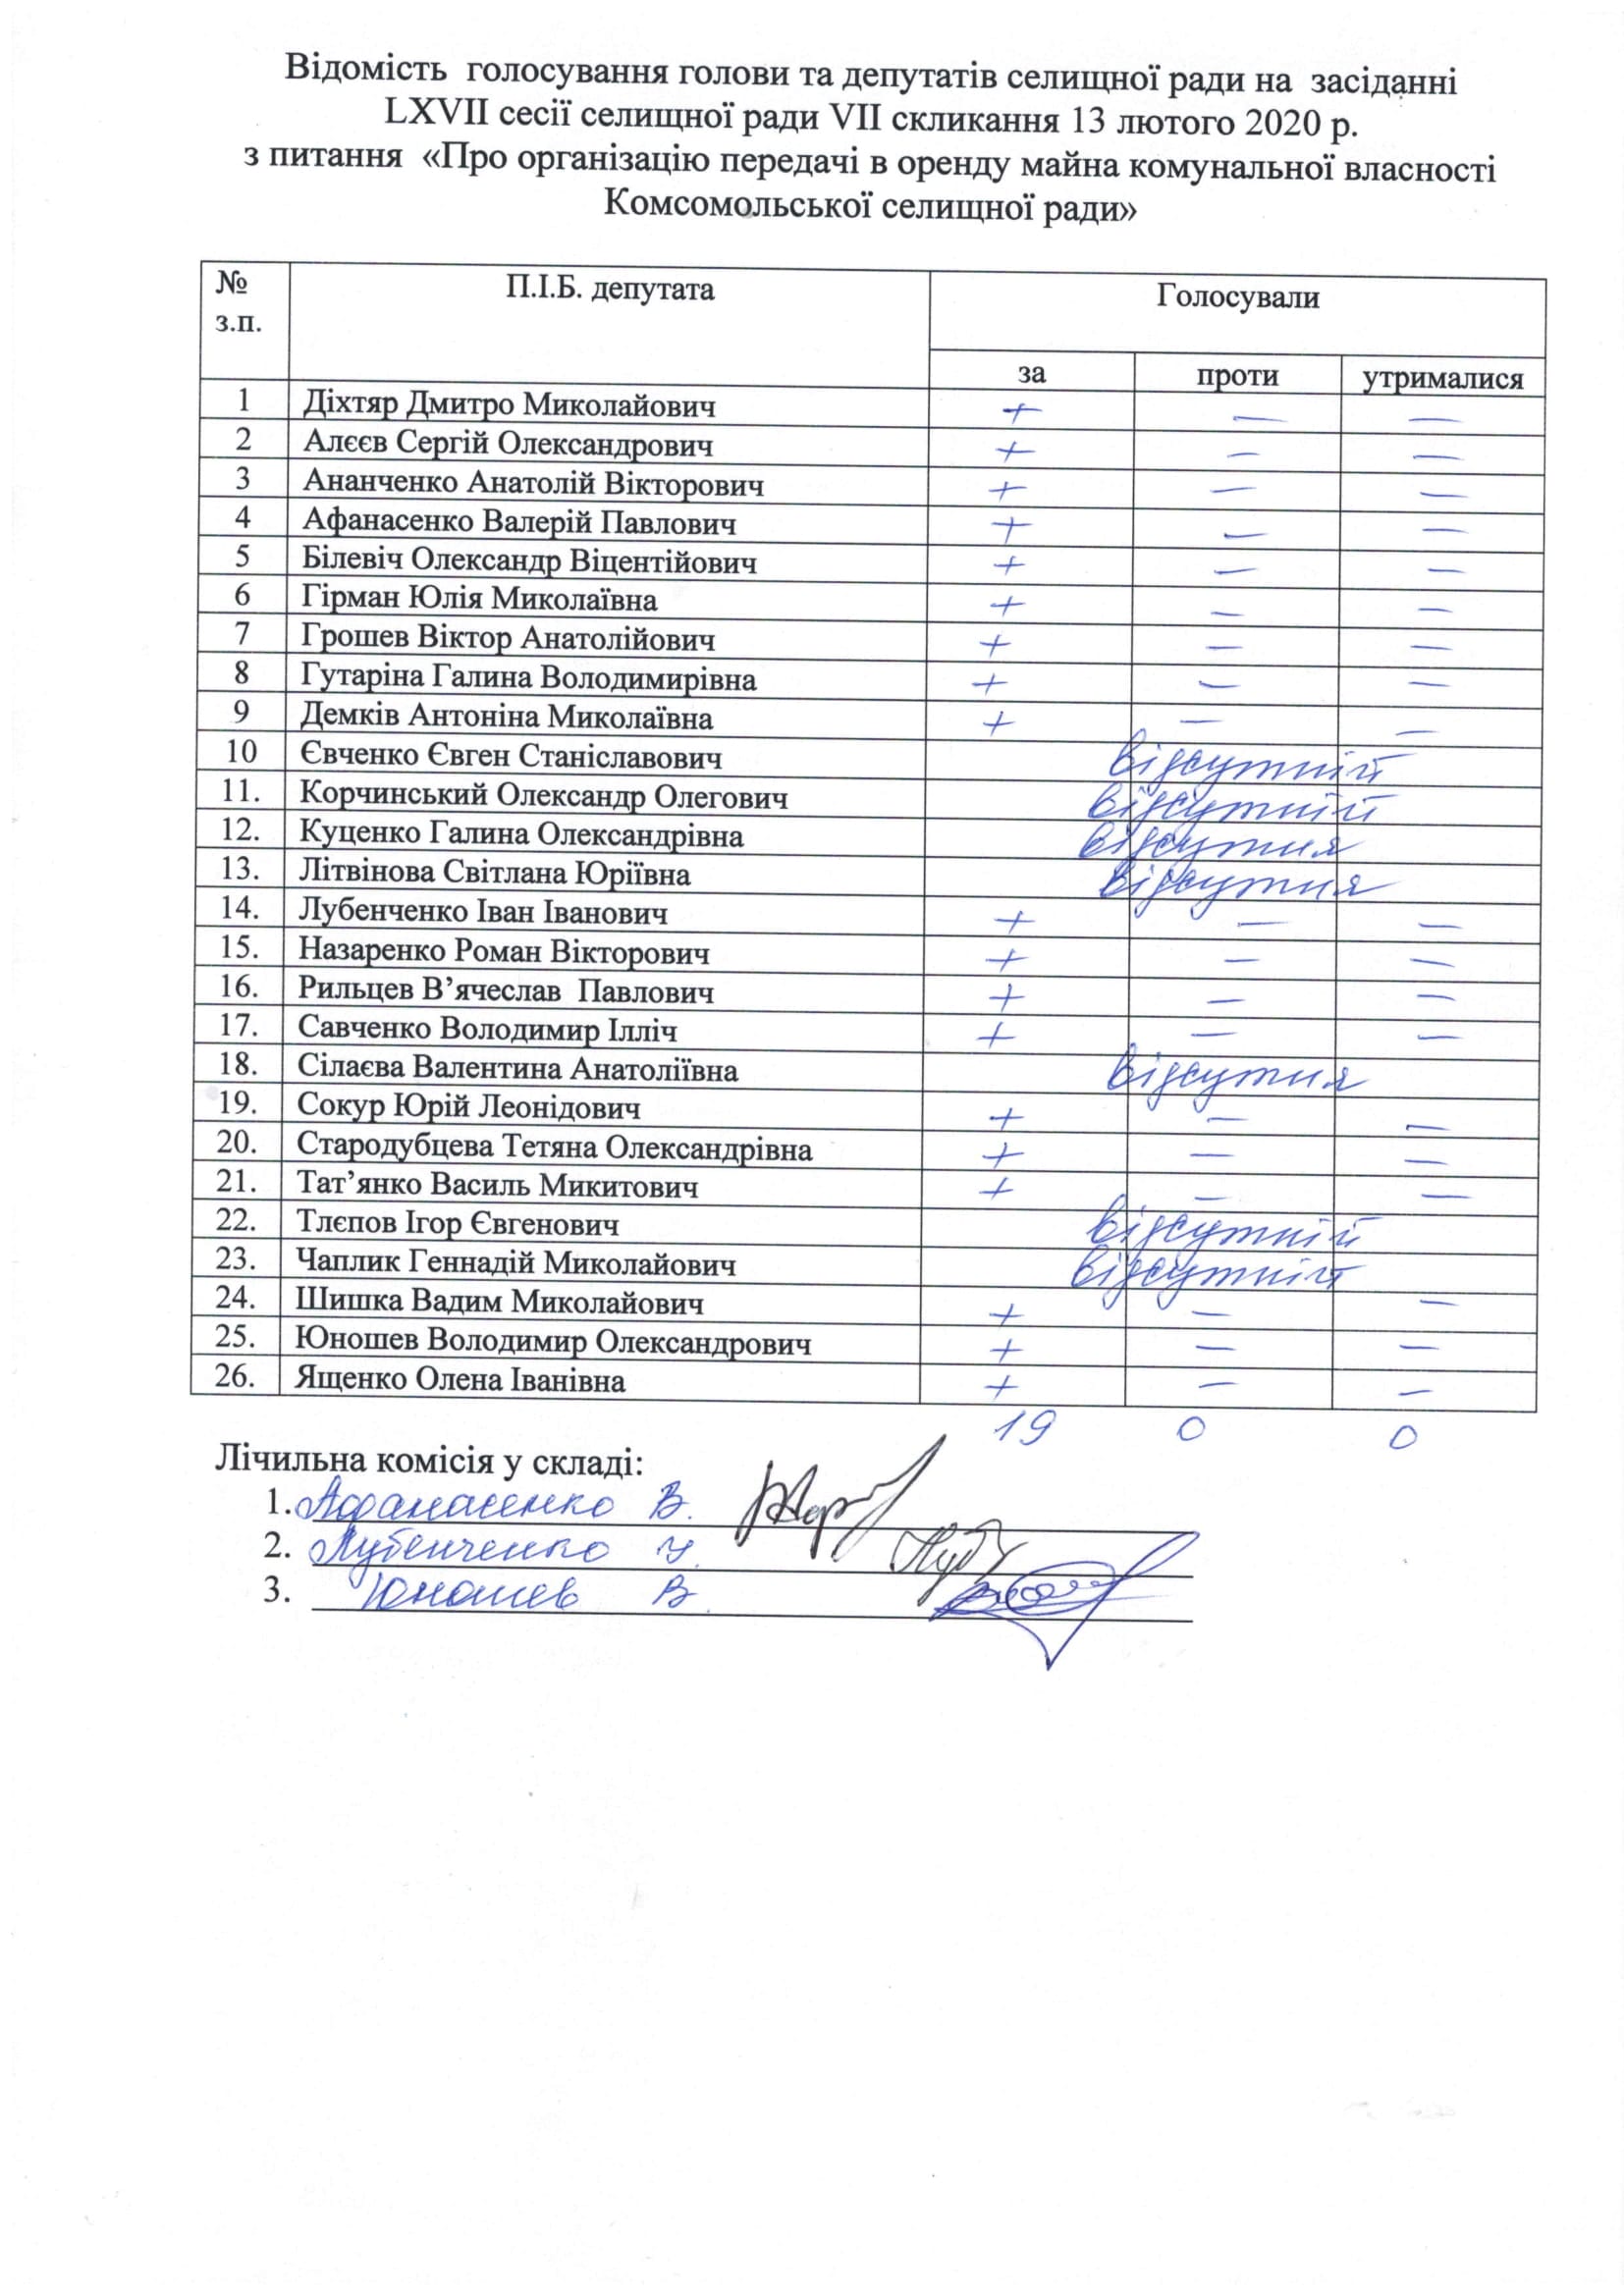 Відомість голосування голови та депутатів селищної ради на засіданні
LXVII сесії селищної ради VII скликання 13 лютого 2020 р.
з питання «Про організацію передачі в оренду майна комунальної власності
Комсомольської селищної ради»
№ з.п. П.І.Б. депутата Голосували
за проти утрималися
1 Діхтяр Дмитро Миколайович + — —
2 Алєєв Сергій Олександрович + — —
3 Ананченко Анатолій Вікторович + — —
4 Афанасенко Валерій Павлович + — —
5 Білевіч Олександр Віцентійович + — —
6 Гірман Юлія Миколаївна + — —
7 Грошев Віктор Анатолійович + — —
8 Гутаріна Галина Володимирівна + — —
9 Демків Антоніна Миколаївна + — —
10 Євченко Євген Станіславович відсутній
11. Корчинський Олександр Олегович відсутній
12. Куценко Галина Олександрівна відсутня
13. Літвінова Світлана Юріївна відсутня
14. Лубенченко Іван Іванович + — —
15. Назаренко Роман Вікторович + — —
16. Рильцев В’ячеслав Павлович + — —
17. Савченко Володимир Ілліч + — —
18. Сілаєва Валентина Анатоліївна відсутня
19. Сокур Юрій Леонідович + — —
20. Стародубцева Тетяна Олександрівна + — —
21. Тат’янко Василь Микитович + — —
22. Тлєпов Ігор Євгенович відсутній
23. Чаплик Геннадій Миколайович відсутній
24. Шишка Вадим Миколайович + — —
25. Юношев Володимир Олександрович + — —
26. Ященко Олена Іванівна + — —
19 0 0
Лічильна комісія у складі:
1. Афанасенко В.
2. Лубенченко И.
3. Юношев В.